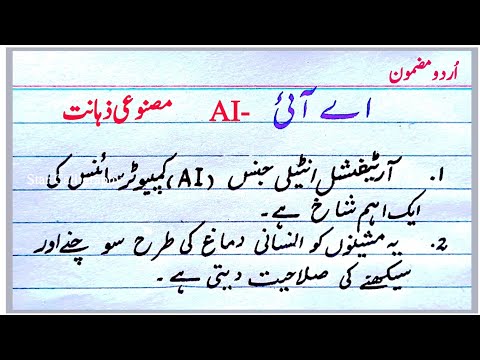 اُردو مضمون
اے آئی -AI مصنوعی ذہانت
1. آرٹیفشل انٹیلی جنس (AI) کمپیوٹر سائنس کی
ایک اہم شاخ ہے۔
2. یہ مشینوں کو انسانی دماغ کی طرح سوچنے اور
سیکھنے کی صلاحیت دیتی ہے۔